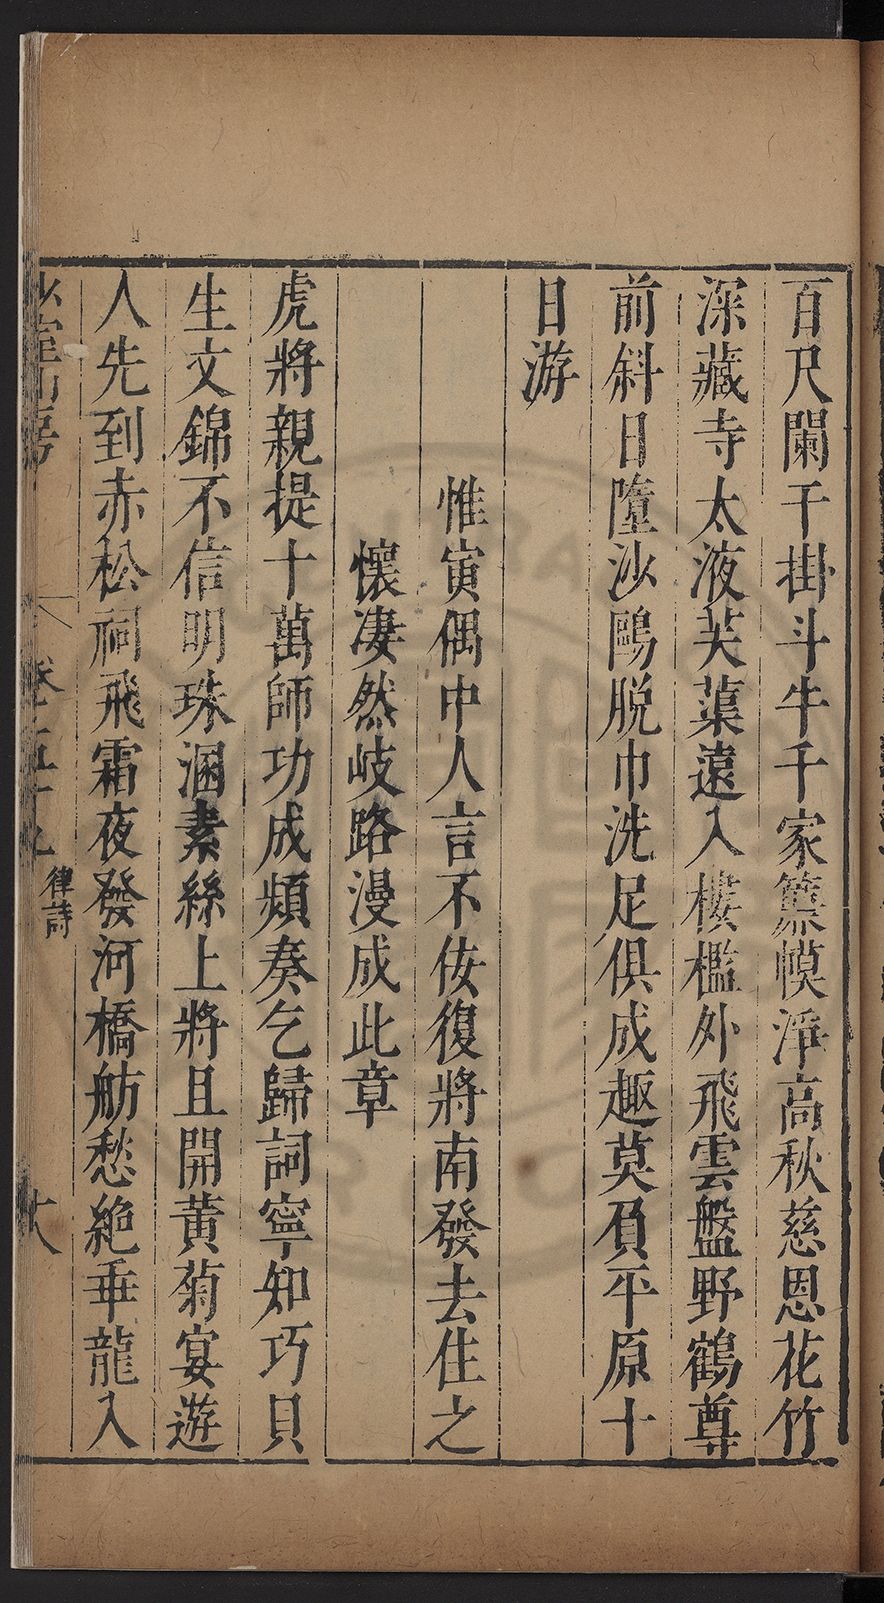 百尺闌干掛斗牛千家簾幙淨高秋慈恩花竹
深藏寺太液芙蕖遠入樓檻外飛雲盤野鶴尊
前斜日墮沙鷗脱巾洗足俱成趣莫負平原十
日游
惟寅偶中人言不佞復將南發去住之
懷凄然岐路漫成此章
虎將親提十萬師功成頻奏乞歸詞寧知巧貝
生文錦不信明珠溷素絲上將且開黄菊宴遊
人先到赤松祠飛霜夜發河橋舫愁絶垂龍入
室山房
卷五十
律詩